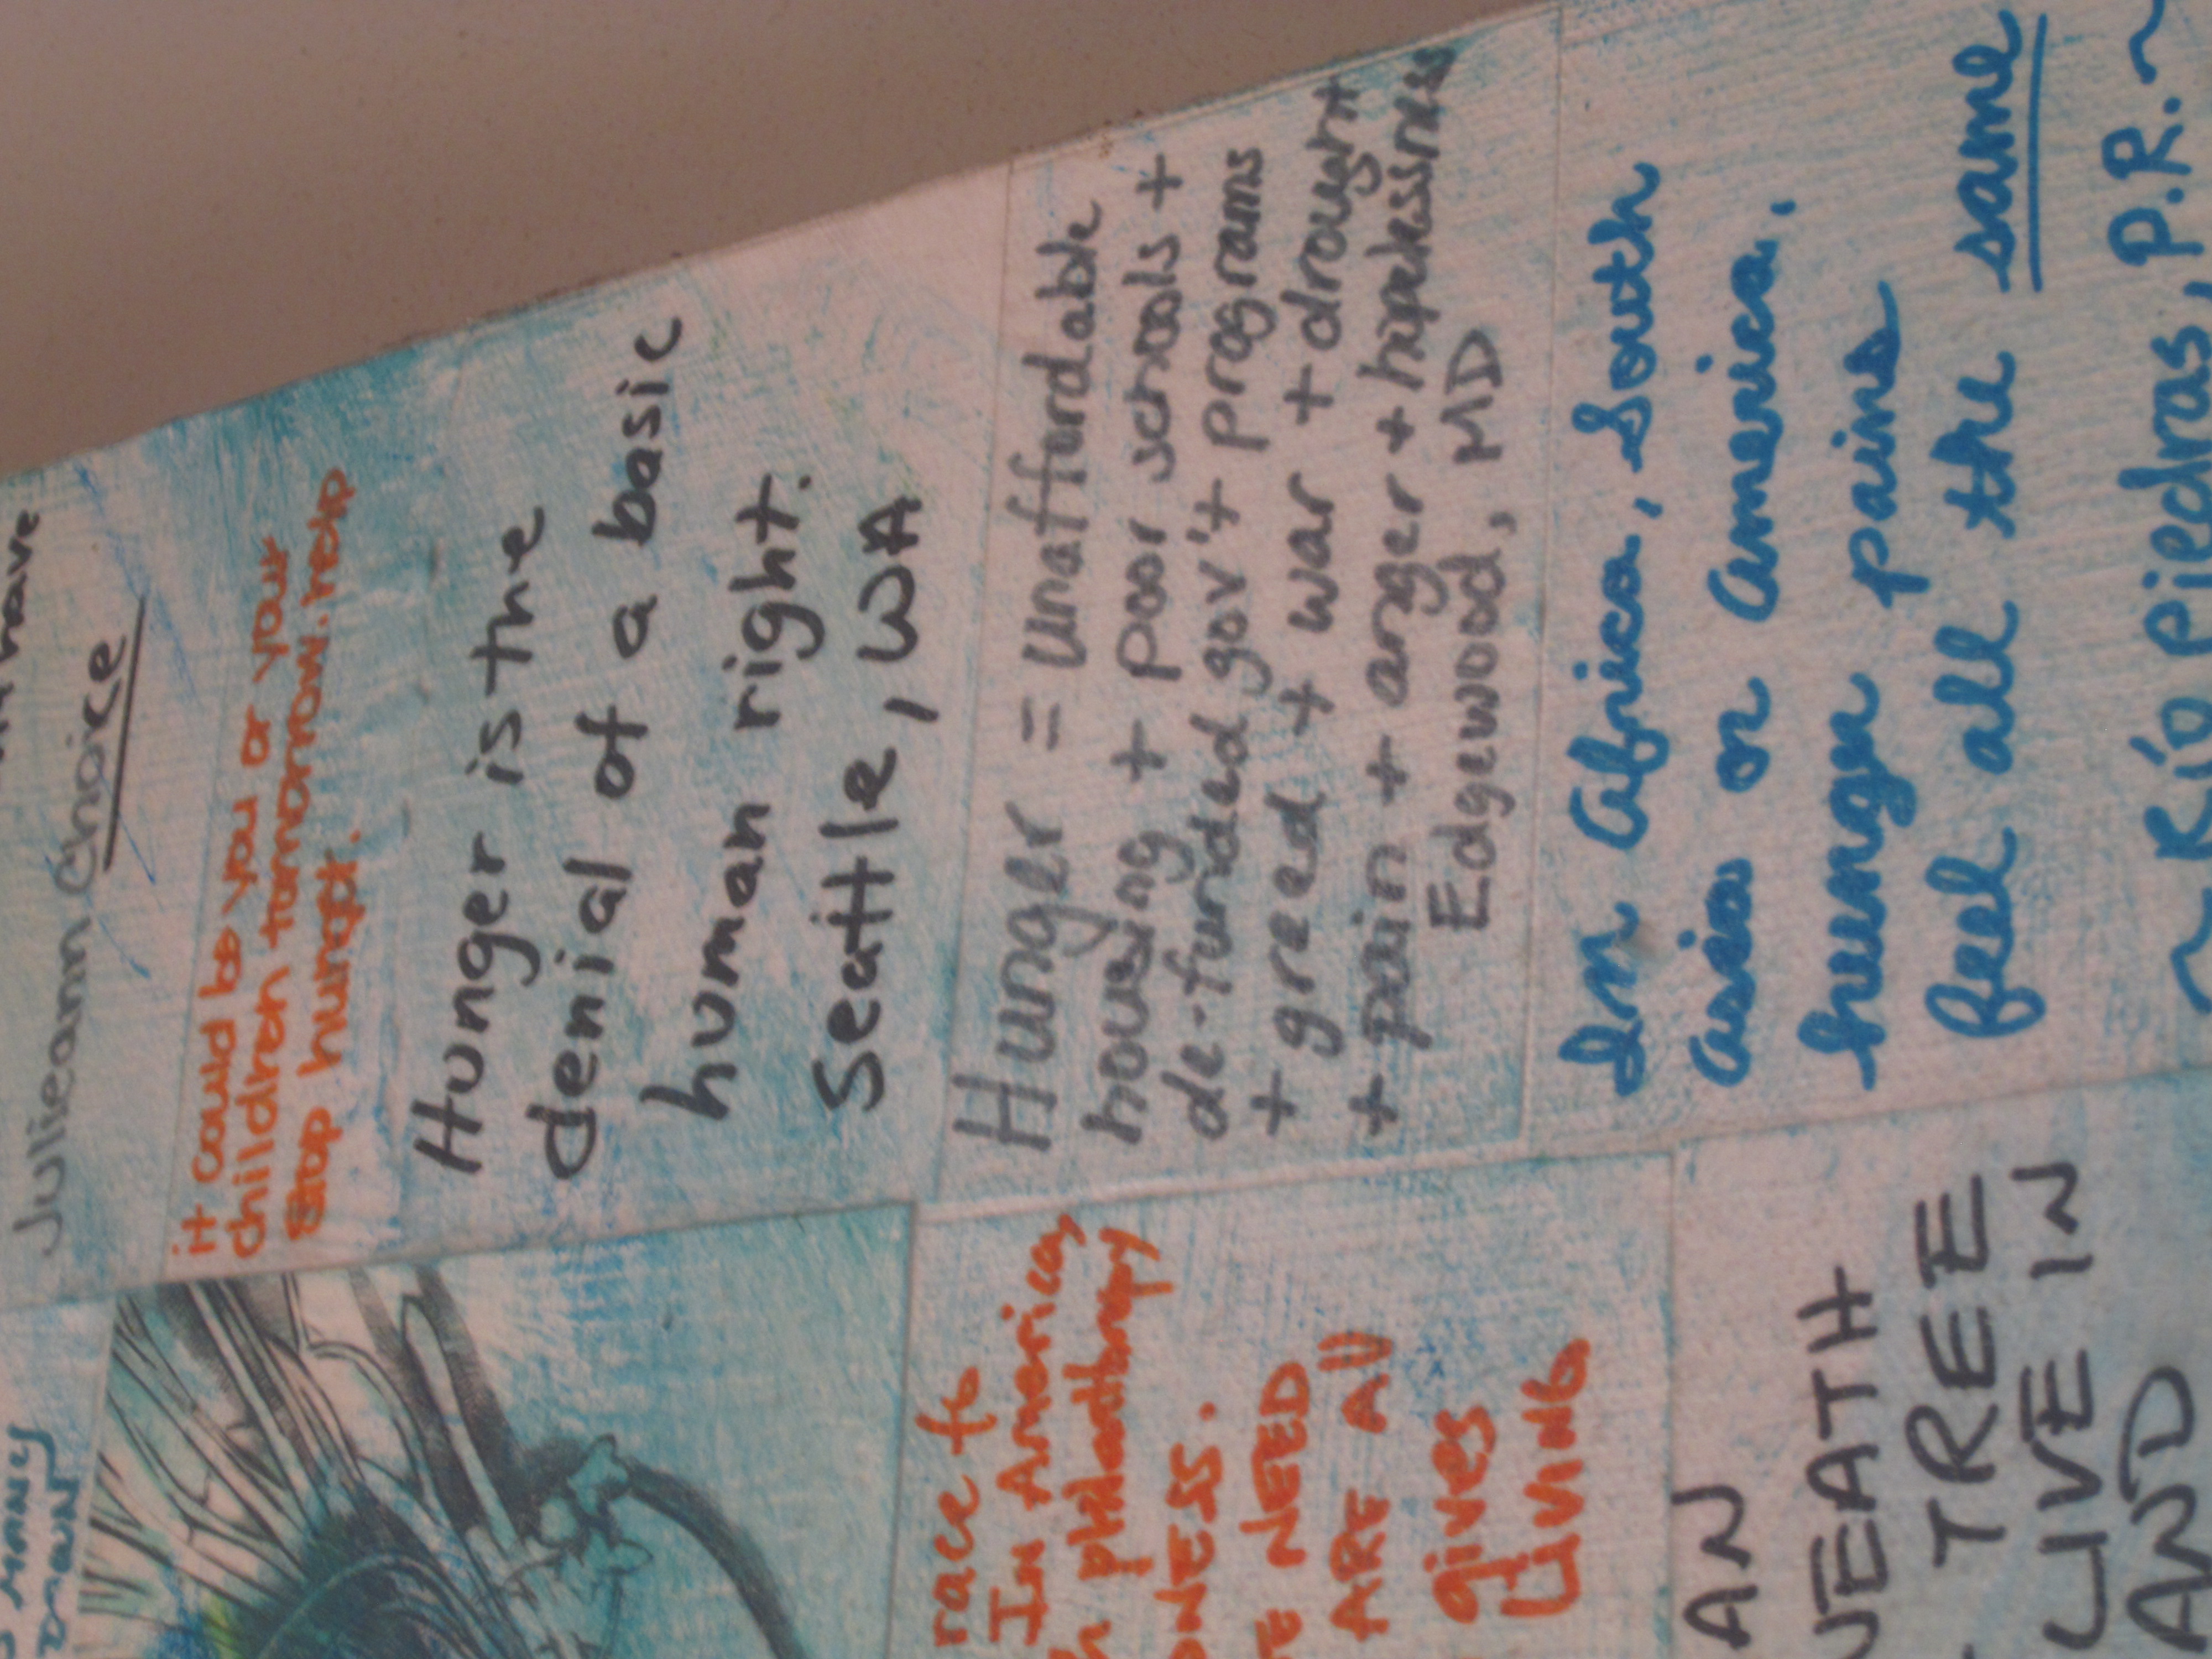 have
Julieann Choice
it could be you or your
children tomorrow. help
stop hunger.
Hunger is the
denial of a basic
human right.
Seattle, WA
Hunger = unaffordable
housing + poor schools +
de-funded gov't programs
+ greed + war + drought
+ pain + anger + hopelessness
Edgewood, MD
In Africa, South
Asia or America,
hunger pains
feel all the same
~ Río Piedras, P.R. ~
MANY
race to
In America,
philanthropy
NEED
ARE All
gives
LIVING
AN
TREE
LIVE IN
AND